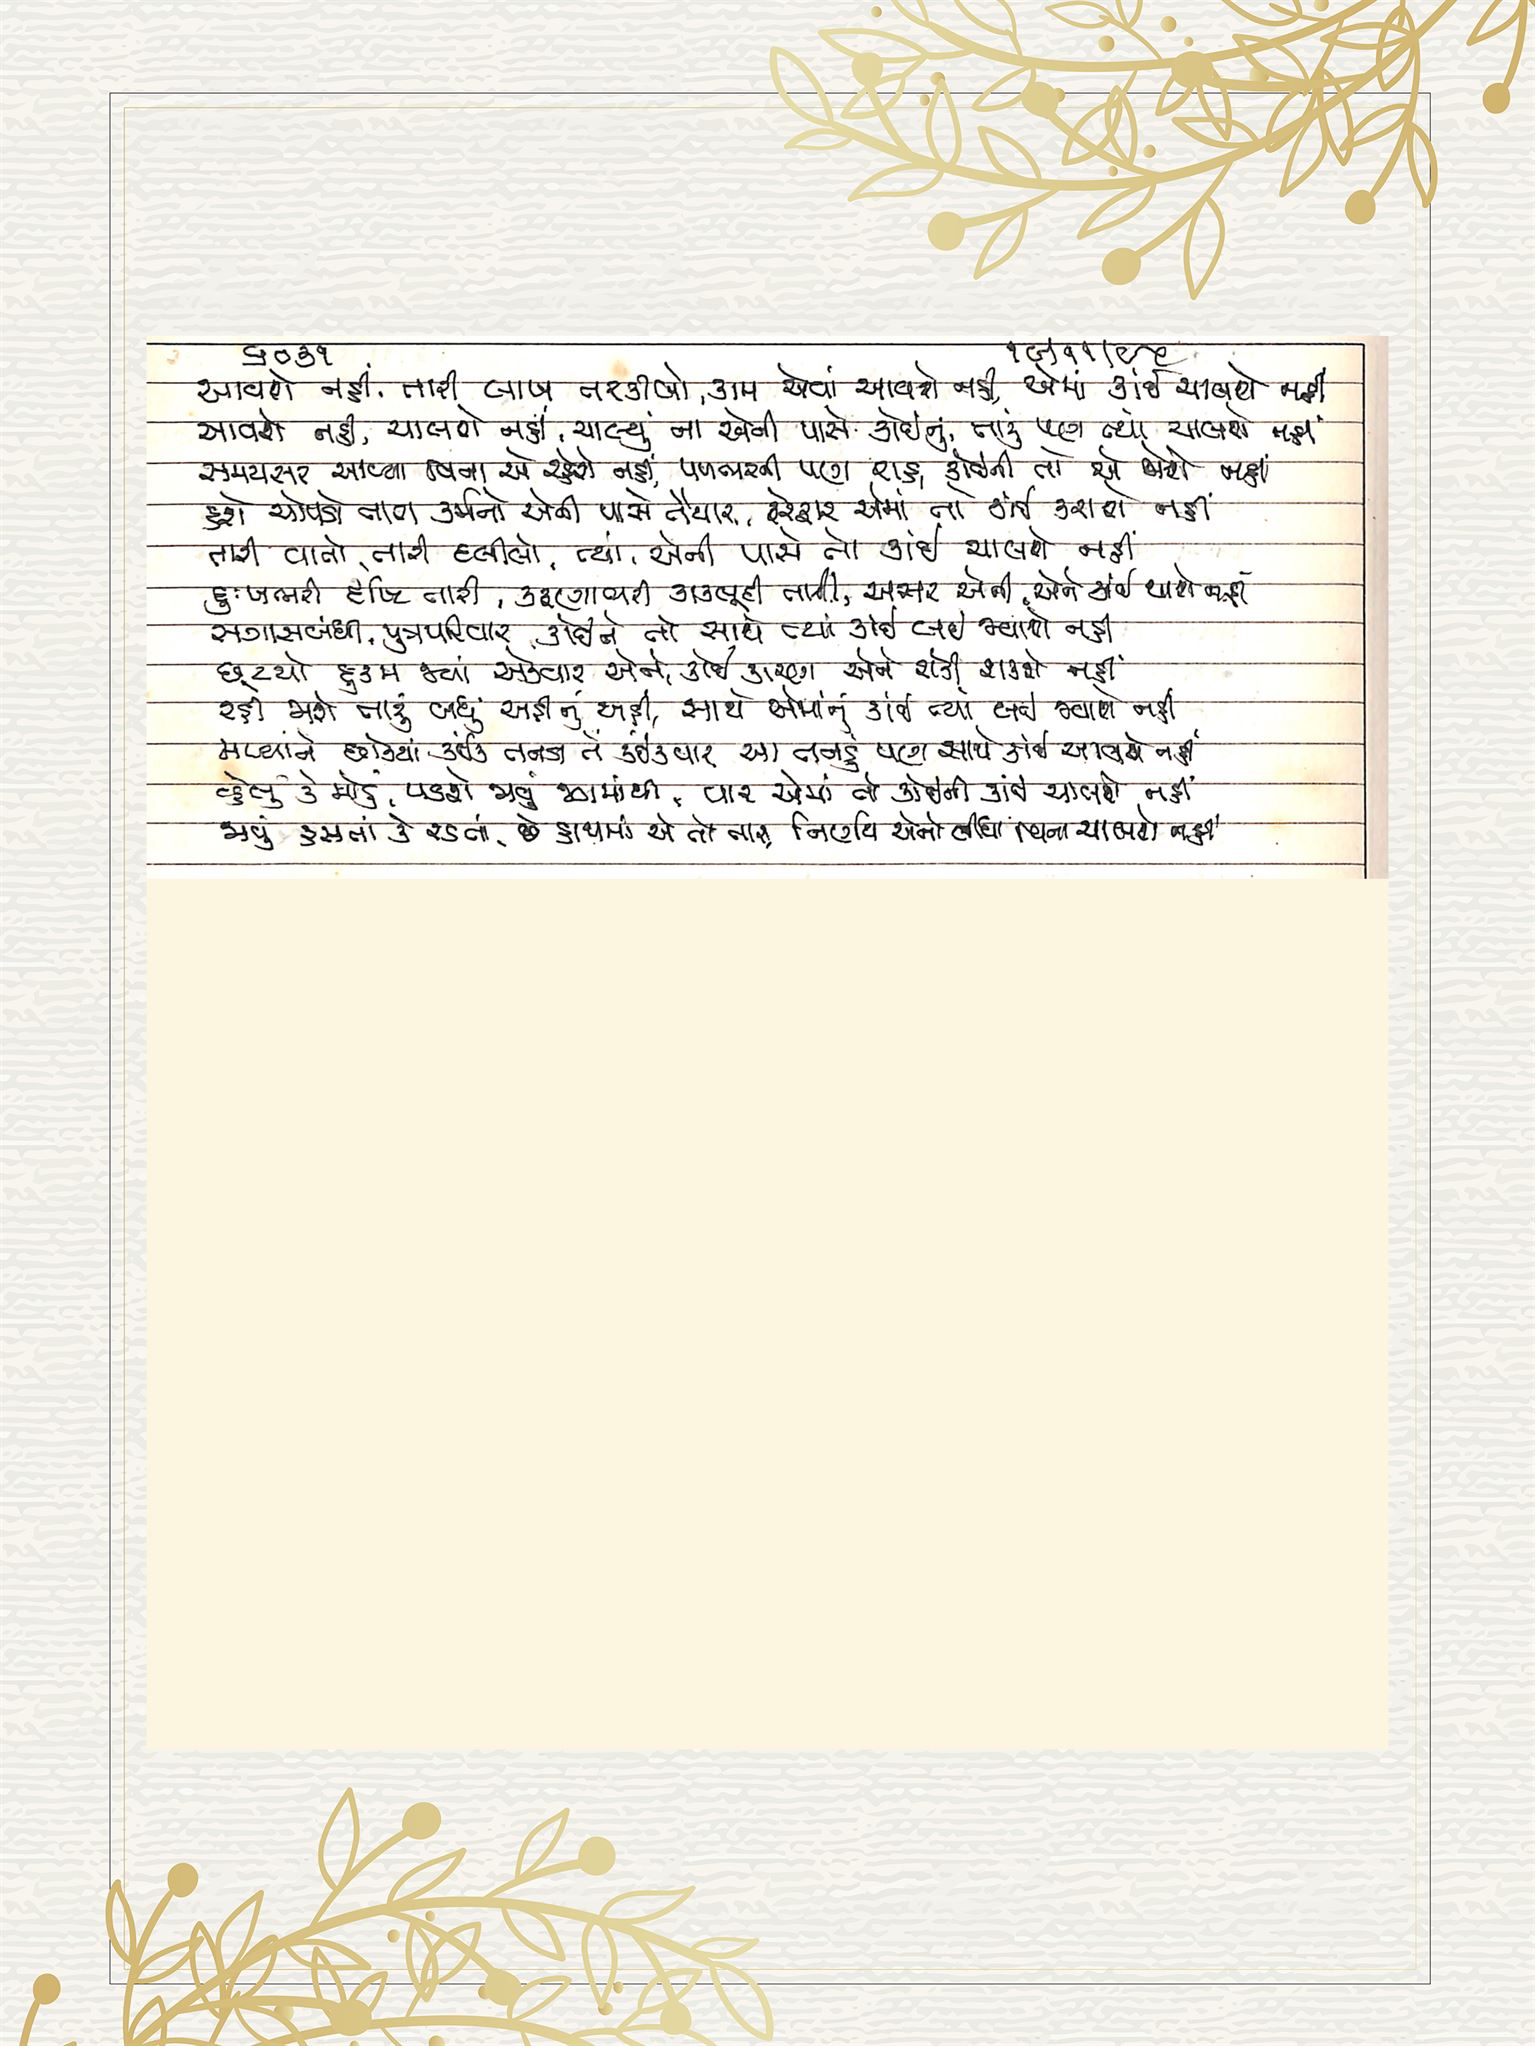 ૬૦૩૧
આવશે નહીં, તારી લાખ તરકીબો, કામ એવાં આવશે નહીં, એમાં કાંઈ ચાલશે નહીં
આવશે નહીં, ચાલશે નહીં, ચાલ્યું ના એની પાસે કોઈનું, તારું પણ ત્યાં ચાલશે નહીં
સમયસર આવ્યા વિના એ રહેશે નહીં, પળભરની પણ રાહ, કોઈની તો એ જોશે નહીં
હશે ચોપડો તારા કર્મનો એની પાસે તૈયાર, ફેરફાર એમાં તો કાંઈ કરાશે નહીં
તારી વાતો, તારી દલીલો, ત્યાં, એની પાસે તો કાંઈ ચાલશે નહીં
દુઃખભરી દૃષ્ટિ તારી, કરુણાભરી કાકલૂદી તારી, અસર એની, એને કાંઈ થાશે નહીં
સગાસબંધી, પુત્રપરિવાર, કોઈને તો સાથે ત્યાં કાંઈ લઈ જવાશે નહીં
છૂટયો હુકમ જ્યાં એકવાર એનો, કોઈ કારણ એને રોકી શકશે નહીં
રહી જાશે તારું બધું અહીંનું અહીં, સાથે એમાંનું કાંઈ ત્યાં લઈ જવાશે નહીં
મળ્યાંને છોડયાં કંઈક તનડાં તેં કંઈકવાર, આ તનડું પણ સાથે કાંઈ આવશે નહીં
વ્હેલું કે મોડું, પડશે જાવું જગમાંથી, વાર એમાં તો કોઈની કાંઈ ચાલશે નહીં
જાવું હસતાં કે રડતાં, છે હાથમાં એ તો તારા, નિર્ણય એનો લીધા વિના ચાલશે નહીં